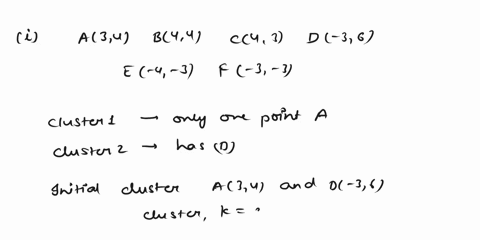 (i) A(3,4) B(4,4) C(4,3) D(-3,6)
E(-4,-3) F(-3,-3)
cluster 1 → only one point A
cluster 2 → has (D)
Initial cluster A(3,4) and D(-3,6)
cluster, k =